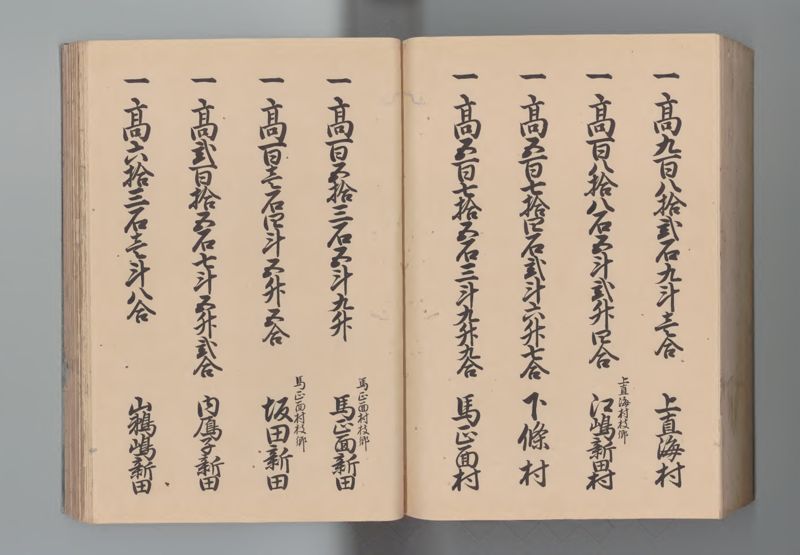 一高九百八拾弐石九斗壱合 上直海村
一高百八拾八石五斗弐升四合 上直海村枝郷 江嶋新田村
一高五百七拾四石弐斗六升七合 下條村
一高五百七拾五石三斗九升九合 馬正面村
一高百五拾三石五斗九升 馬正面村枝郷 馬正面新田
一高百壱石四斗五升五合 馬正面村枝郷 坂田新田
一高弐百拾五石七斗五升弐合 内鳫子新田
一高六拾三石壱斗八合 山鵜嶋新田